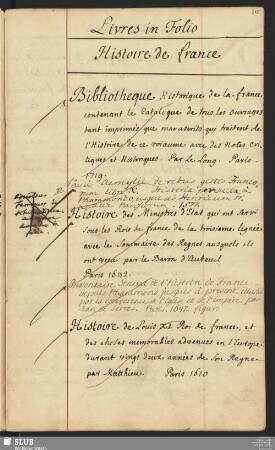 Livres in Folio
Histoire de france
Bibliotheque Historique de la france
contenant le Catalogue de tous les ouvrages
tant imprimés que manuscrits qui traitent de
l'Histoire de ce roiaume avec des Notes cri-
tiques et Historiques Par le Long. Paris
1719.
Pauli Aemylii de rebus gestis Franco-
rum libri X. Historia
Pharamondo usque ad Henricum II.
1577.
Histoire des Ministres d'Etat qui ont servi
sous les Rois de france de la troisieme lignée
avec le Sommaire des Regnes ausquels ils
ont vecu par le Baron d'Auteuil
Paris 1642
Inventaire general de l'histoire de France
depuis Pharamond jusques à present illustré
par la conference de l'Eglise et de l'Empire par
Jean de Serres. Paris, 1647. figur.
Histoire de Louis XI Roi de france, et
des choses memorables advenues en l'Europe
durant vingt deux années de son Regne
par Matthieu Paris 1610
SLUB
Wir führen Wissen.